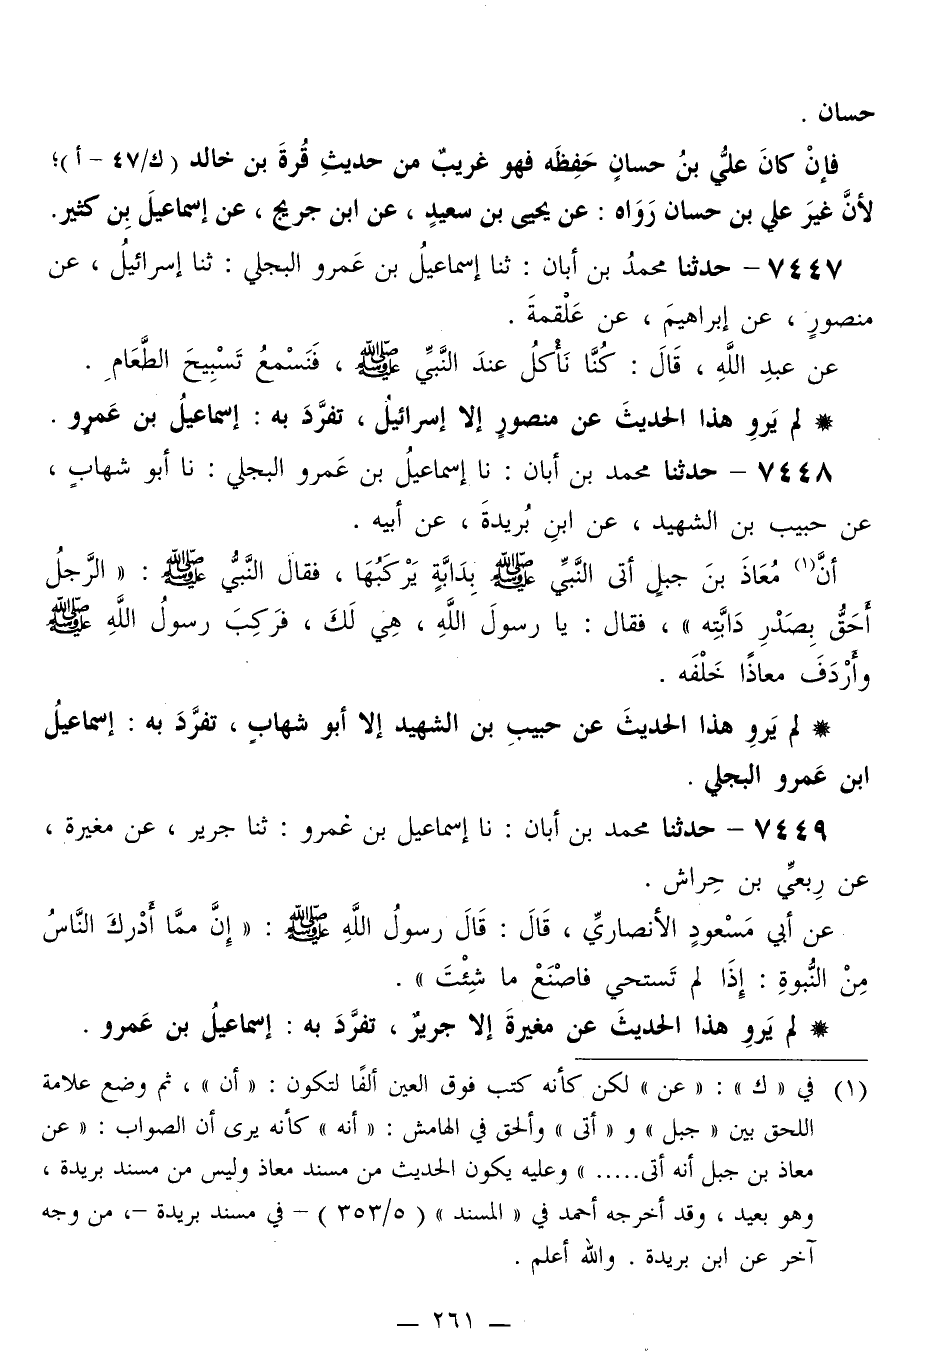 حسان .
فإنْ كانَ عليُّ بنُ حسانٍ حَفِظَه فهو غريبٌ من حديثِ قُرةَ بن خالد ( ك/٤٧ – أ )؛
لأنَّ غيرَ علي بن حسان رَوَاه : عن يحيى بن سعيدٍ ، عن ابن جريج ، عن إسماعيلَ بن كثير.
٧٤٤٧ – حدثنا محمدُ بن أبان : ثنا إسماعيلُ بن عَمرو البجلي : ثنا إسرائيلُ ، عن
منصورٍ ، عن إبراهيمَ ، عن عَلْقمةَ .
عن عبدِ اللَّهِ ، قَالَ : كُنَّا نَأْكلُ عندَ النَّبيِّ ﷺ ، فَنَسْمعُ تَسْبِيحَ الطَّعَامِ .
* لم يَروِ هذا الحديثَ عن منصورٍ إلا إسرائيلُ ، تفرَّدَ به : إسماعيلُ بن عَمرو .
٧٤٤٨ – حدثنا محمد بن أبان : نا إسماعيلُ بن عَمرو البجلي : نا أبو شهابٍ ،
عن حبيب بن الشهيد ، عن ابنِ بُريدةَ ، عن أبيه .
أنَّ(١) مُعَاذَ بنَ جبلٍ أتى النَّبيِّ ﷺ بِدَابَّةٍ يَرْكَبُهَا ، فقال النَّبيُّ ﷺ : « الرَّجلُ
أَحَقُّ بِصَدْرِ دَابَّتِه » ، فقال : يا رسولَ اللَّهِ ، هِي لَكَ ، فرَكِبَ رسولُ اللَّهِ ﷺ
وأَرْدَفَ معاذًا خَلْفَه .
* لم يَروِ هذا الحديثَ عن حبيبِ بن الشهيد إلا أبو شهابٍ ، تفرَّدَ به : إسماعيلُ
ابن عَمرو البجلي .
٧٤٤٩ – حدثنا محمد بن أبان : نا إسماعيل بن عَمرو : ثنا جرير ، عن مغيرة ،
عن رِبعيِّ بن حِراش .
عن أبي مَسْعودٍ الأنصاريِّ ، قَالَ : قَالَ رسولُ اللَّهِ ﷺ : « إِنَّ ممَّا أَدْركَ النَّاسُ
مِنْ النُّبوةِ : إِذَا لم تَستحي فاصْنَعْ ما شِئْتَ » .
* لم يَروِ هذا الحديثَ عن مغيرةَ إلا جريرٌ ، تفرَّدَ به : إسماعيلُ بن عَمرو .
(١) في « ك » : « عن » لكن كأنه كتب فوق العين ألفًا لتكون : « أن » ، ثم وضع علامة
اللحق بين « جبل » و « أتى » وألحق في الهامش : « أنه » كأنه يرى أن الصواب : « عن
معاذ بن جبل أنه أتى..... » وعليه يكون الحديث من مسند معاذ وليس من مسند بريدة ،
وهو بعيد ، وقد أخرجه أحمد في « المسند » ( ٣٥٣/٥ ) – في مسند بريدة –، من وجه
آخر عن ابن بريدة . والله أعلم .
— ٢٦١ —